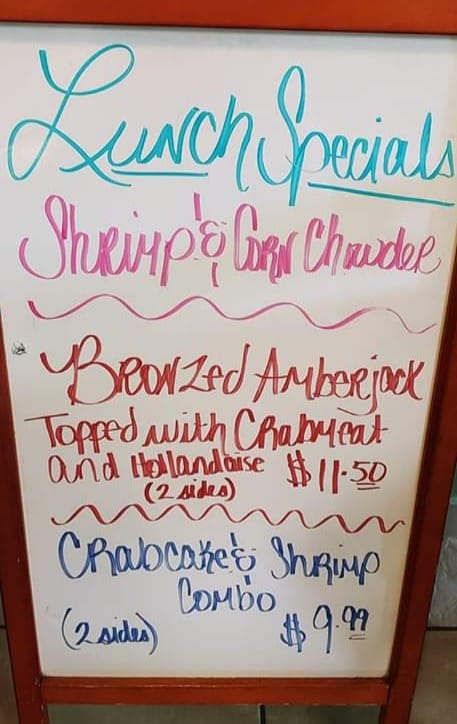 Lunch Specials
Shrimp & Corn Chowder
Bronzed Amberjack
Topped with Crabmeat
and Hollandaise $11.50
(2 sides)
Crabcake & Shrimp
Combo
(2 sides) $9.99